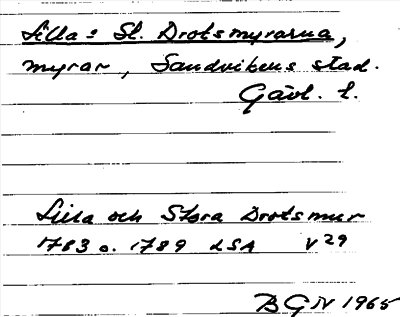 Lilla o St. Drotsmyrarna,
myrar, Sandvikens stad.
Gävl. l.
Lilla och Stora Drotsmur
1783 o. 1789 LSA V 29
BGN 1965